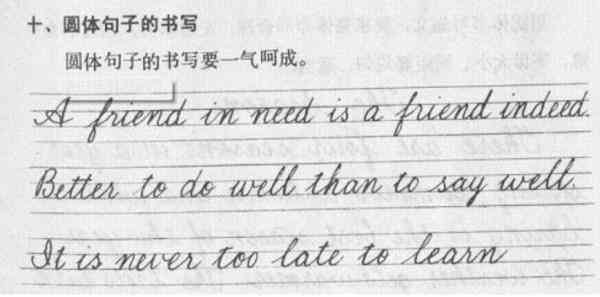 十、圆体句子的书写
圆体句子的书写要一气呵成。
A friend in need is a friend indeed.
Better to do well than to say well.
It is never too late to learn